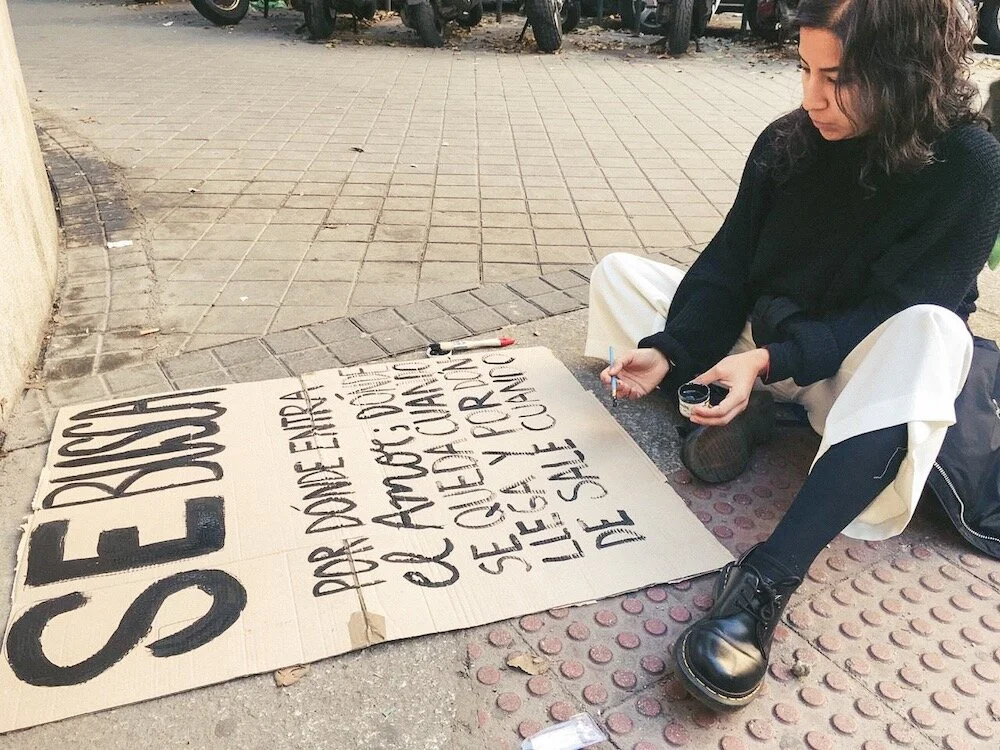 SE BUSCA
POR DÓNDE ENTRA
el Amor; DÓNDE
SE QUEDA CUANDO
LLEGA Y POR DÓN
DE SALE CUANDO